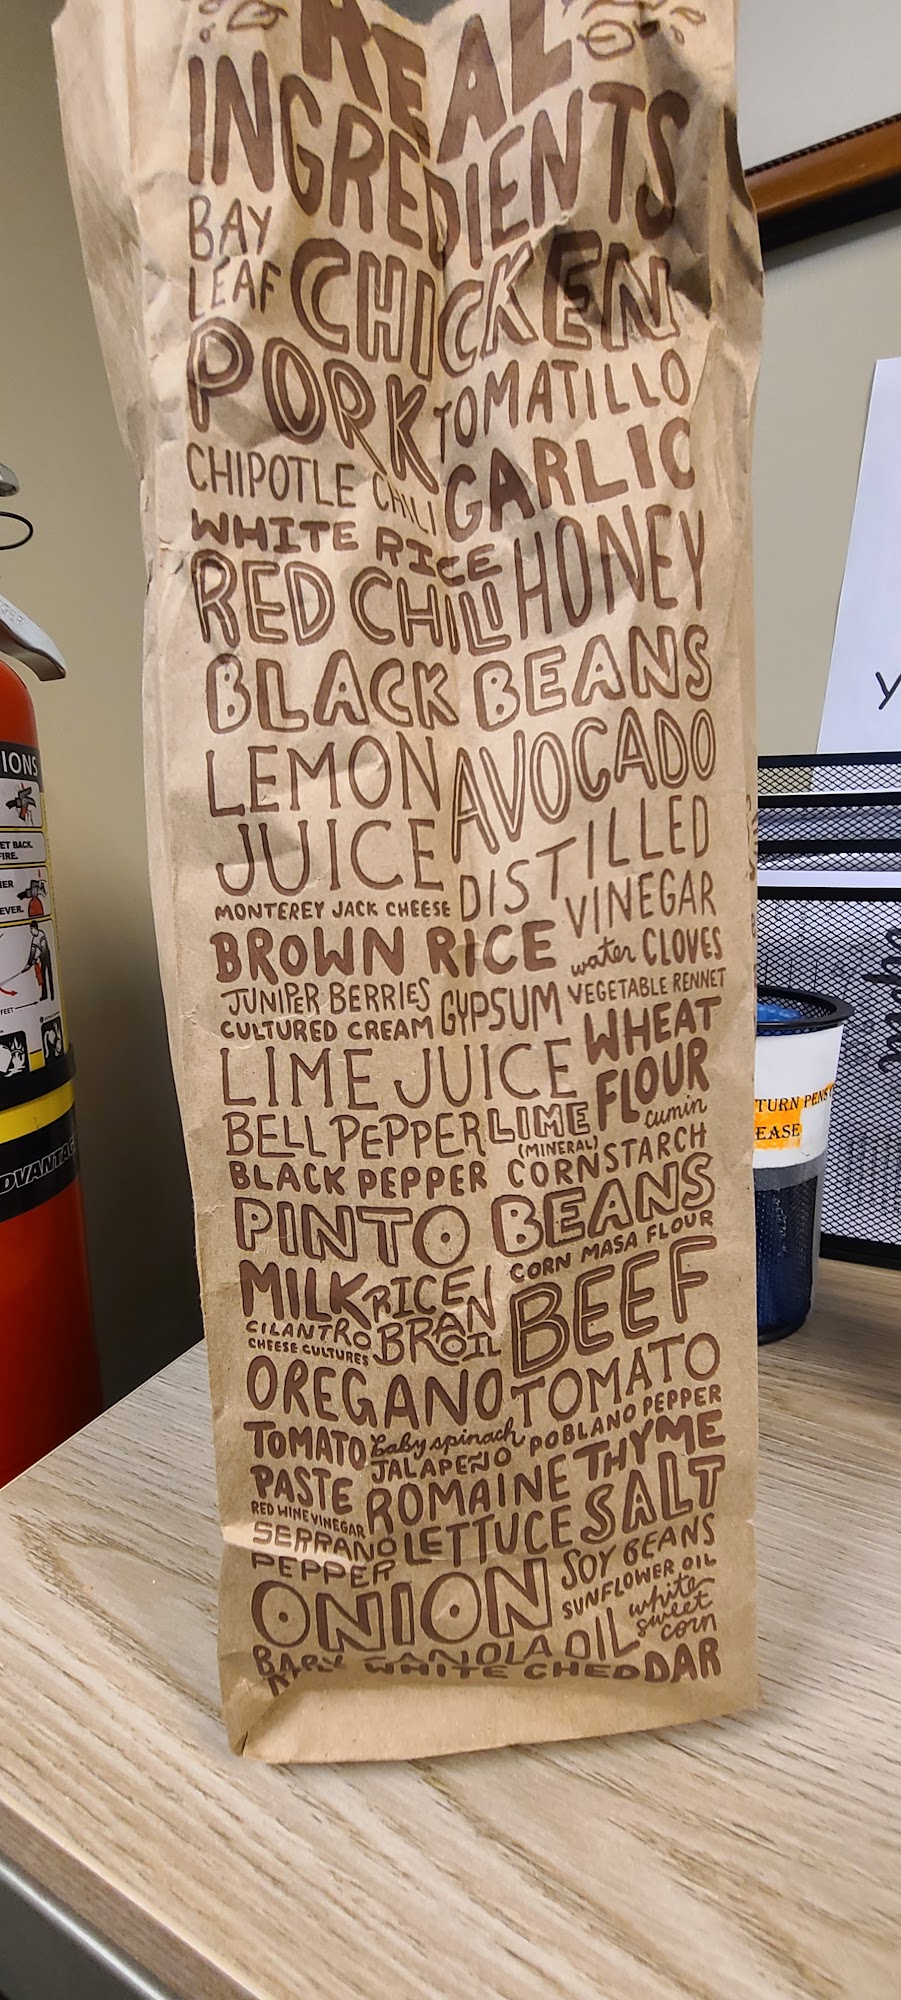 REAL
INGREDIENTS
BAY
LEAF
CHICKEN
PORK
TOMATILLO
CHIPOTLE CHILI
GARLIC
WHITE RICE
HONEY
RED CHILI
BLACK BEANS
LEMON
JUICE
AVOCADO
DISTILLED
VINEGAR
MONTEREY JACK CHEESE
BROWN RICE
water CLOVES
JUNIPER BERRIES
GYPSUM
VEGETABLE RENNET
CULTURED CREAM
WHEAT
FLOUR
LIME JUICE
BELL PEPPER
LIME
(MINERAL)
cumin
BLACK PEPPER
CORNSTARCH
PINTO BEANS
CORN MASA FLOUR
MILK
RICE
BRAN
OIL
BEEF
CILANTRO
CHEESE CULTURES
OREGANO
TOMATO
TOMATO
PASTE
baby spinach
POBLANO PEPPER
JALAPEÑO
THYME
RED WINE VINEGAR
ROMAINE
LETTUCE
SALT
SERRANO
PEPPER
SOY BEANS
SUNFLOWER OIL
ONION
white
sweet
corn
CANOLA OIL
WHITE CHEDDAR
IONS
ET BACK.
FIRE.
EVER.
FEET
DVANTA
TURN PENS
EASE